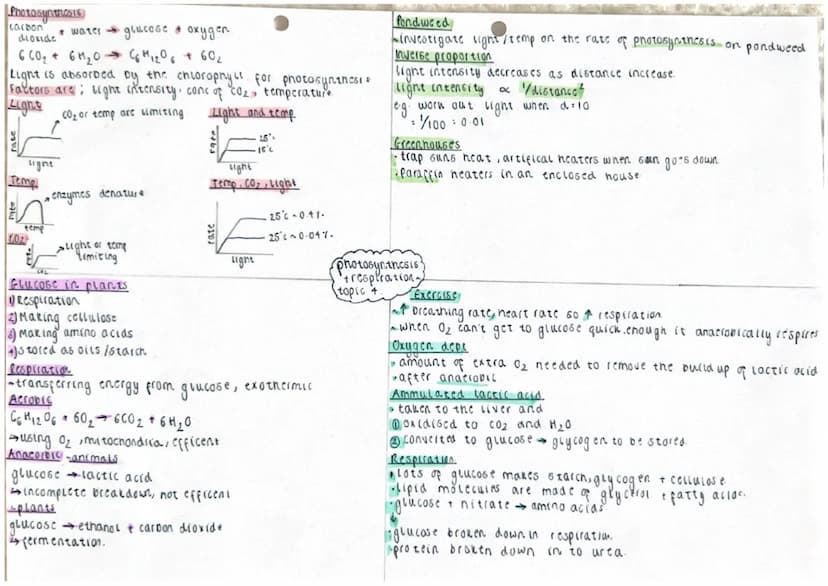 Photosynthesis
carbon dioxide + water → glucose + oxygen
6CO₂ + 6H₂O → C₆H₁₂O₆ + 6O₂
Light is absorbed by the chlorophyll for photosynthesis.
Factors are; light intensity. conc of CO₂, temperature.
Light
CO₂ or temp are limiting
rate
light
Light and temp
rate
25°c
15°c
light
Temp
enzymes denature
rate
temp
Temp, CO₂, Light
rate
25°c ~ 0.4%
25°c ~ 0.04%
light
CO₂
Light or temp limiting
rate
CO₂
Pondweed
- investigate light/temp on the rate of photosynthesis on pondweed
Inverse proportion
light intensity decreases as distance increase.
light intensity ∝ 1/distance²
e.g. work out light when d=10
= 1/100 = 0.01
Greenhouses
- trap suns heat, artifical heaters when sun goes down
- paraffin heaters in an enclosed house
photosynthesis
+ respiration -
topic 4
Glucose in plants
1) Respiration
2) Making cellulose
3) Making amino acids
4) stored as oils/starch
Respiration
- transferring energy from glucose, exothermic
Aerobic
C₆H₁₂O₆ + 6O₂ → 6CO₂ + 6H₂O
→ using O₂, mitochondria, efficent
Anaerobic - animals
glucose → lactic acid
→ incomplete breakdown, not efficent
- plants
glucose → ethanol + carbon dioxide
→ fermentation.
Exercise
- ↑ breathing rate, heart rate so ↑ respiration
- when O₂ can't get to glucose quick enough it anaerobically respires
Oxygen dept
• amount of extra O₂ needed to remove the build up of lactic acid
• after anaerobic
Ammulated lactic acid
• taken to the liver and
① oxidised to CO₂ and H₂O
② converted to glucose → glycogen to be stored.
Respiration
• Lots of glucose makes starch, glycogen + cellulose
• Lipid molecules are made of glycerol + fatty acids.
• glucose + nitrate → amino acids
• glucose broken down in respiration.
• protein broken down in to urea.